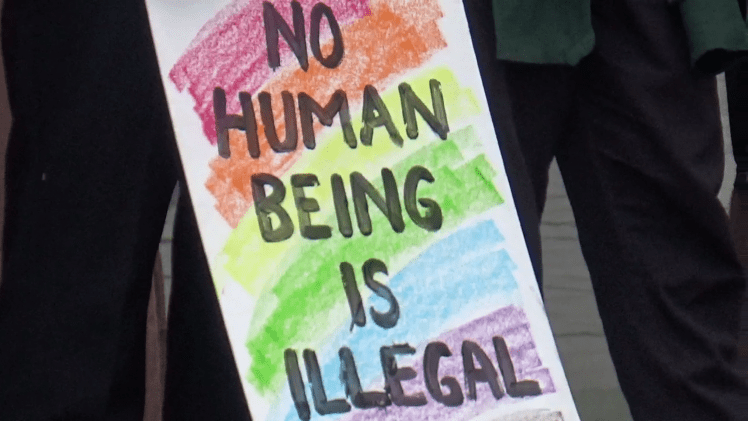 NO
HUMAN
BEING
IS
ILLEGAL